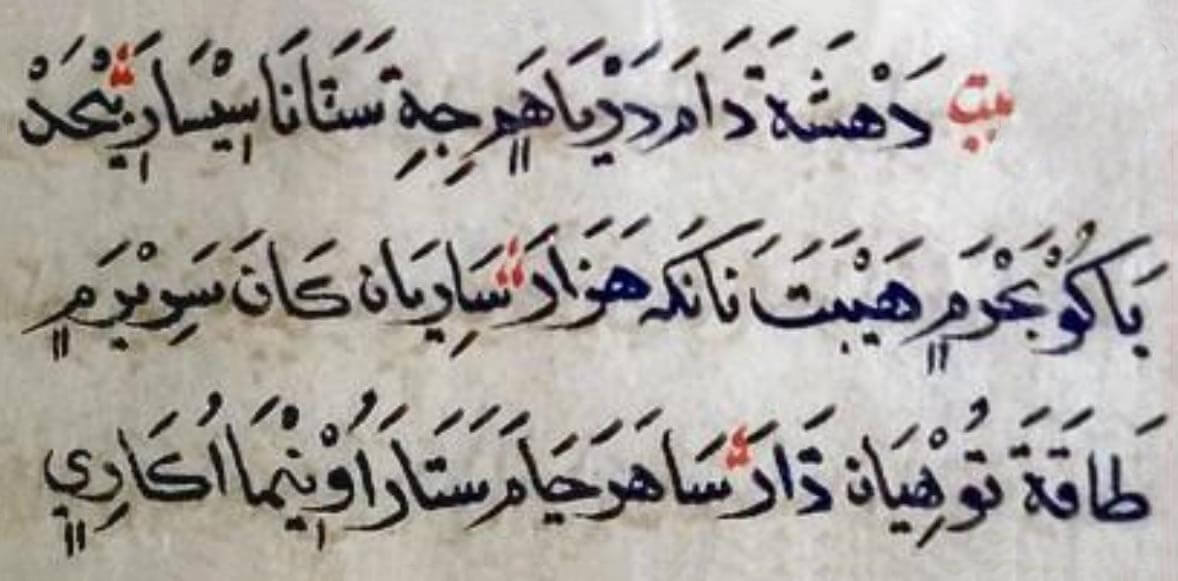 بيت دَهْشَة دَامَ دَدْيَاهٍ جِهِةَ سَتَانَا سِيْسَارَ
يَاكُوْ بَحْرَمٍ هَيْبَتَ نَانَكَه هَزَارَ سَارِيَان كَانَ
طَاقَةَ تُوْهِيَان دَارَ سَاهَرَجَامَ سَتَارَاُوْنِيْمَا اُكَارِيٍ